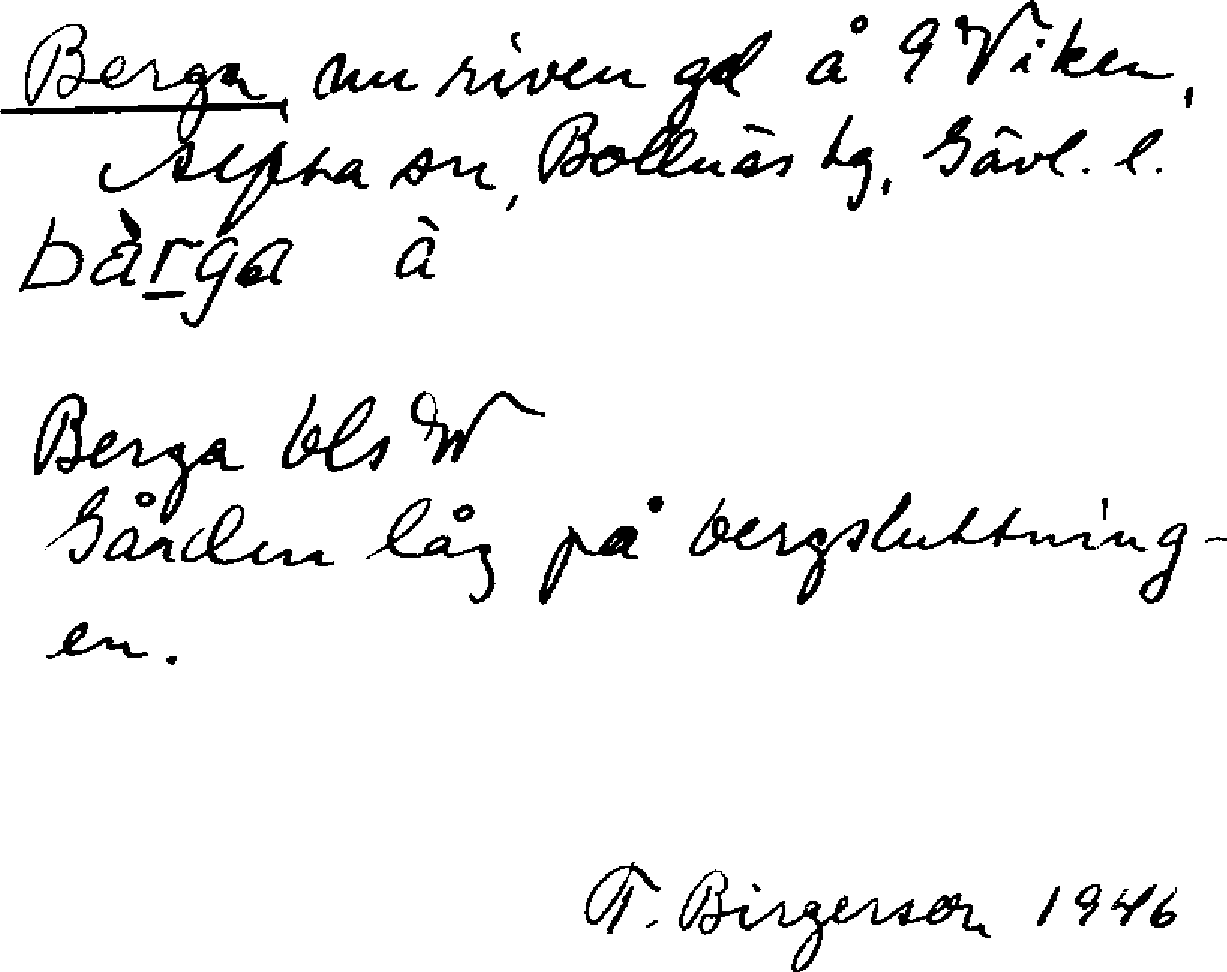 Berga, nu riven gd å 9 Viken,
Alfta sn, Bollnäs tg, Gävl. l.
bàrga à
Berga bls W
Gården låg på bergsluttning-
en.
T. Birgerson 1946